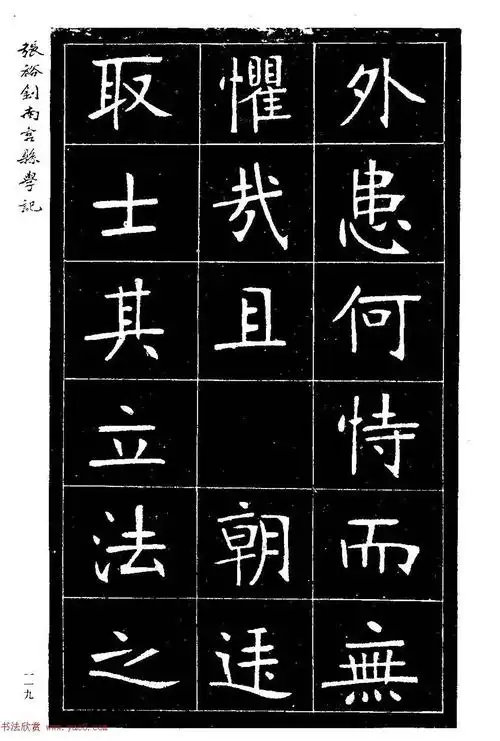 外患何恃而無
懼哉且 朝廷
取士其立法之
張裕釗南宮縣學記
一一九
书法欣赏 www.yac8.com